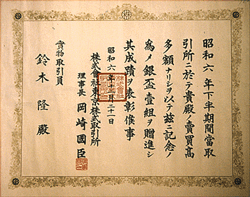 昭和六年下半期間當取
引所ニ於テ貴殿ノ賣買高
多額ナリシヲ以テ茲ニ記念ノ
為メ銀盃壹組ヲ贈進シ
其成蹟ヲ表彰候事
昭和六年十二月二十一日
株式會社東京株式取引所
理事長 岡崎國臣
實物取引員
鈴木隆殿